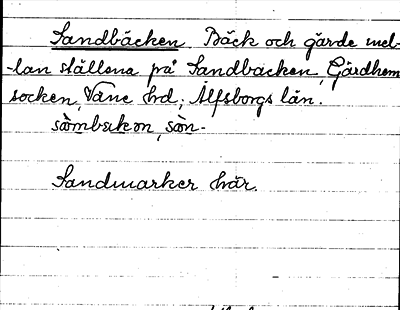 Sandbäcken. Bäck och gärde mel-
-lan ställena på Sandbacken, Gärdhem
socken, Väne hrd, Älfsborgs län.
sàmbækən, sàn-
Sandmarker här.